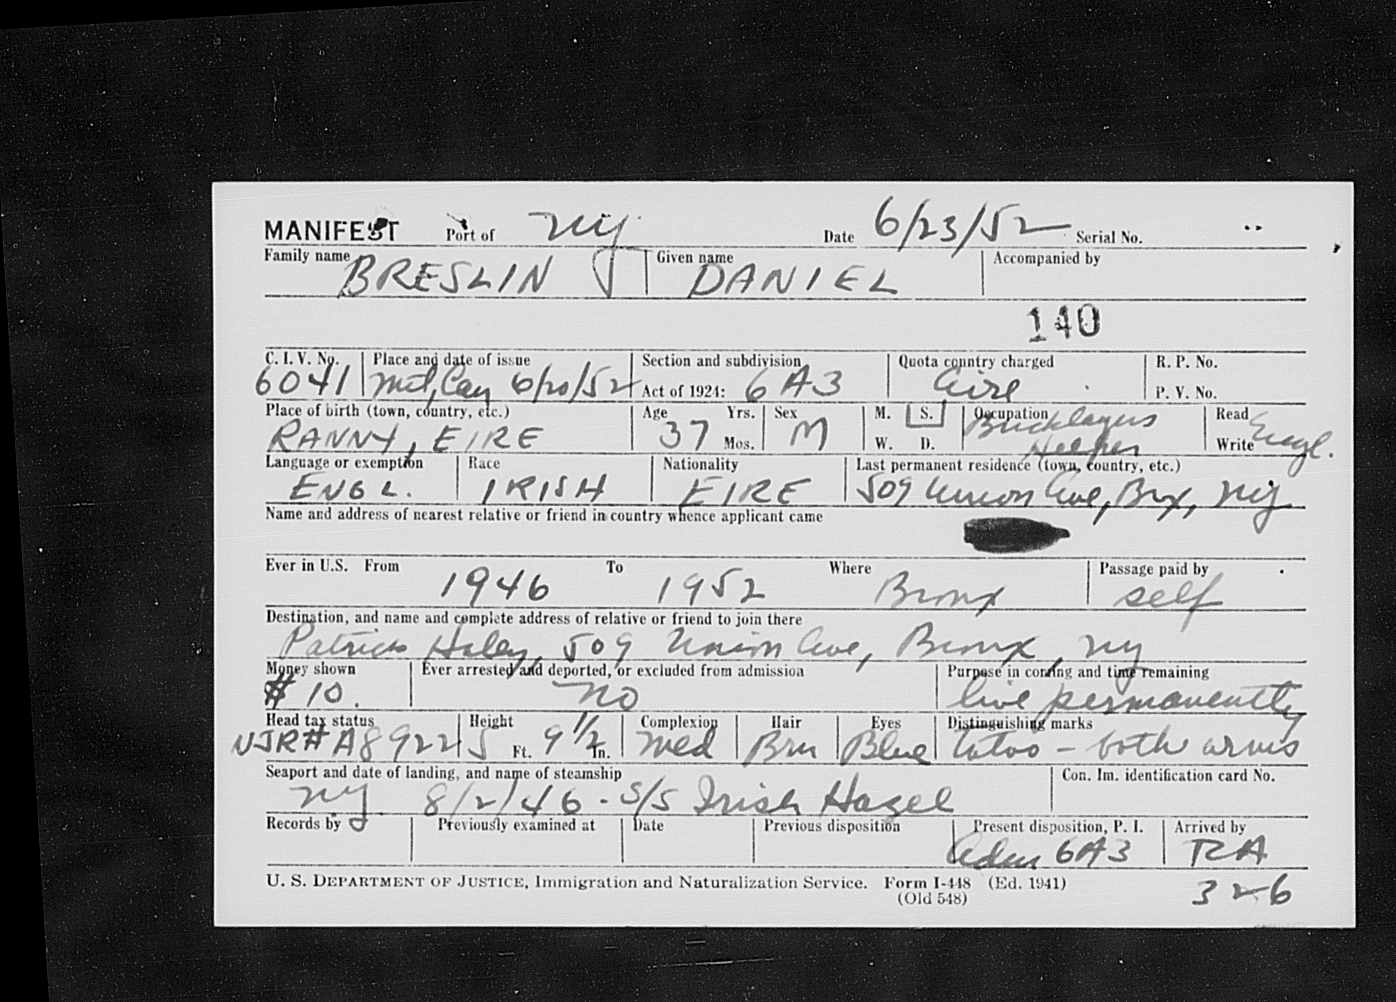 MANIFEST Port of NY Date 6/23/52 Serial No.
Family name BRESLIN Given name DANIEL Accompanied by
140
C. I. V. No. 6041 Place and date of issue Mtl, Can 6/20/52 Section and subdivision Act of 1924: 6A3 Quota country charged Eire R. P. No. P. V. No.
Place of birth (town, country, etc.) RANNY, EIRE Age 37 Yrs. Mos. Sex M M. S. W. D. Occupation Bricklayers Helper Read Write Engl.
Language or exemption ENGL. Race IRISH Nationality EIRE Last permanent residence (town, country, etc.) 509 Union Ave, Brx, NY
Name and address of nearest relative or friend in country whence applicant came
Ever in U.S. From 1946 To 1952 Where Bronx Passage paid by self
Destination, and name and complete address of relative or friend to join there
Patrick Haley, 509 Union Ave, Bronx, NY
Money shown $10. Ever arrested and deported, or excluded from admission no Purpose in coming and time remaining live permanently
Head tax status Height 5 Ft. 9 1/2 In. Complexion Med Hair Brn Eyes Blue Distinguishing marks tatoo - both arms
Seaport and date of landing, and name of steamship NY 8/2/46 - S/S Irish Hazel Con. Im. identification card No.
Records by Previously examined at Date Previous disposition Present disposition, P. I. Adm 6A3 Arrived by RA
U. S. DEPARTMENT OF JUSTICE, Immigration and Naturalization Service. Form I-448 (Ed. 1941) 326
(Old 548)